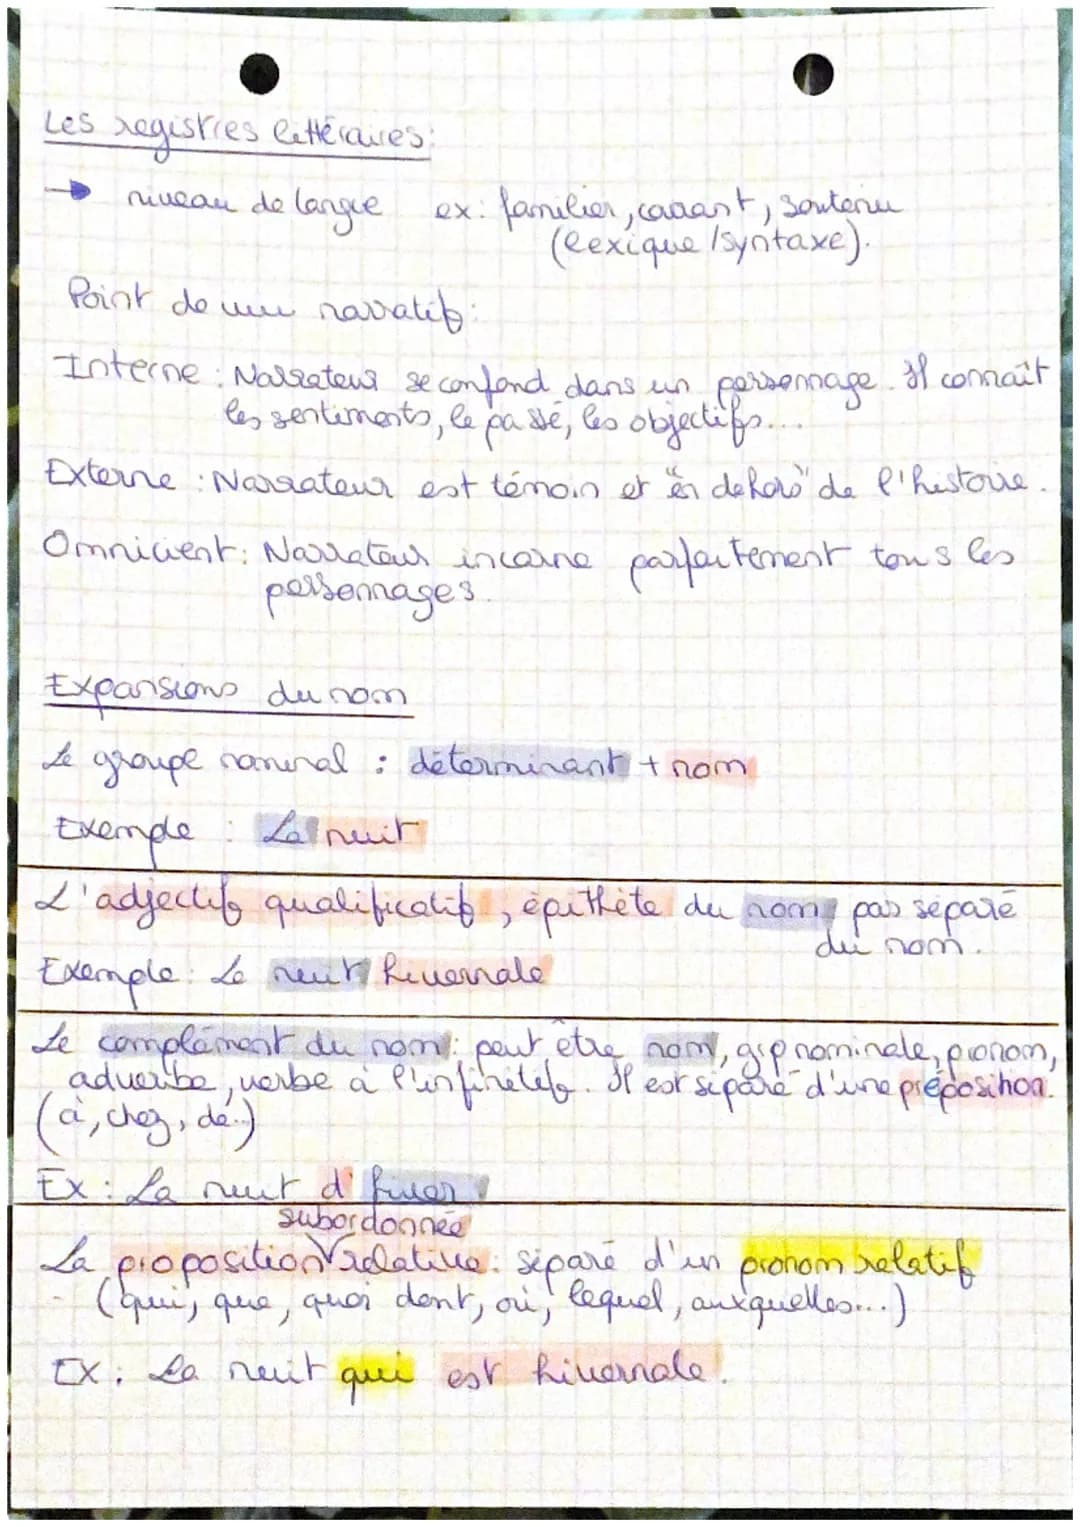 Les registres littéraires:
→ niveau de langue ex: familier, courant, soutenu
(lexique/syntaxe).
Point de vue narratif:
Interne : Narrateur se confond dans un personnage. Il connaît
les sentiments, le passé, les objectifs...
Externe : Narrateur est témoin et "en dehors" de l'histoire.
Omnicient: Narrateur incarne parfaitement tous les
personnages.
Expansions du nom
Le groupe nominal : déterminant + nom
Exemple : La nuit
L'adjectif qualificatif, épithète du nom, pas séparé
du nom.
Exemple: La nuit hivernale
Le complément du nom: peut être nom, grp nominale, pronom,
adverbe, verbe à l'infinitif. Il est séparé d'une préposition.
(à, chez, de..)
Ex: La nuit d'hiver
subordonnée
La proposition V relative: séparé d'un pronom relatif
(qui, que, quoi dont, où, lequel, auxquelles...)
EX: La nuit qui est hivernale.